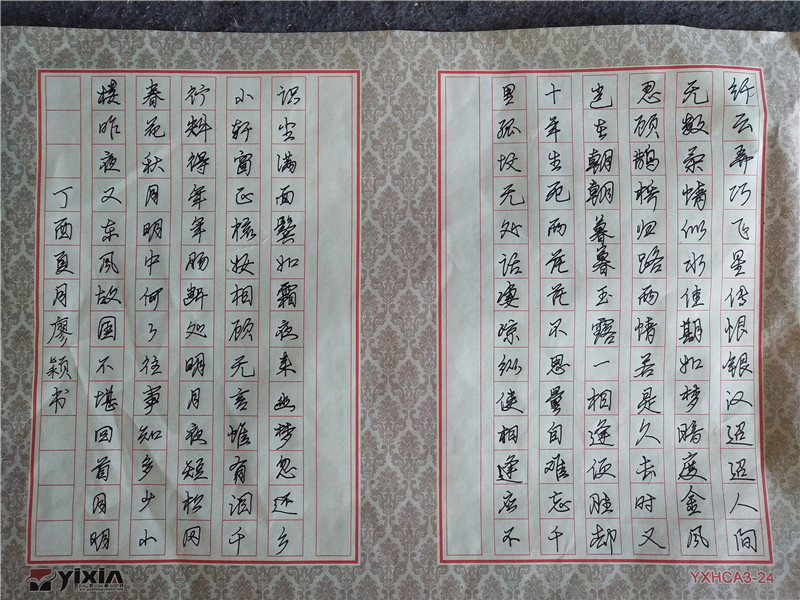 纤云弄巧飞星传恨银汉迢迢人间
无数柔情似水佳期如梦暗度金风
忍顾鹊桥归路两情若是久长时又
岂在朝朝暮暮玉露一相逢便胜却
十年生死两茫茫不思量自难忘千
里孤坟无处话凄凉纵使相逢应不
识尘满面鬓如霜夜来幽梦忽还乡
小轩窗正梳妆相顾无言惟有泪千
行料得年年肠断处明月夜短松冈
春花秋月明中何了往事知多少小
楼昨夜又东风故国不堪回首月明
丁酉夏月廖颖书
yixin
YXHCA3-24